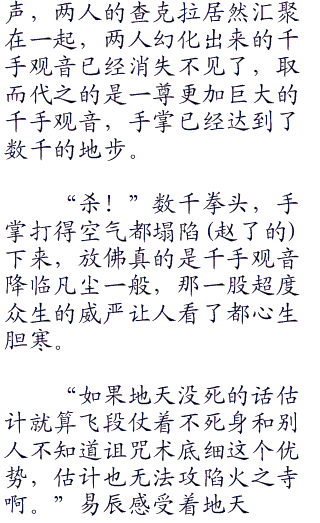 声，两人的查克拉居然汇聚
在一起，两人幻化出来的千
手观音已经消失不见了，取
而代之的是一尊更加巨大的
千手观音，手掌已经达到了
数千的地步。
“杀！”数千拳头，手
掌打得空气都塌陷(赵了的)
下来，放佛真的是千手观音
降临凡尘一般，那一股超度
众生的威严让人看了都心生
胆寒。
“如果地天没死的话估
计就算飞段仗着不死身和别
人不知道诅咒术底细这个优
势，估计也无法攻陷火之寺
啊。”易辰感受着地天